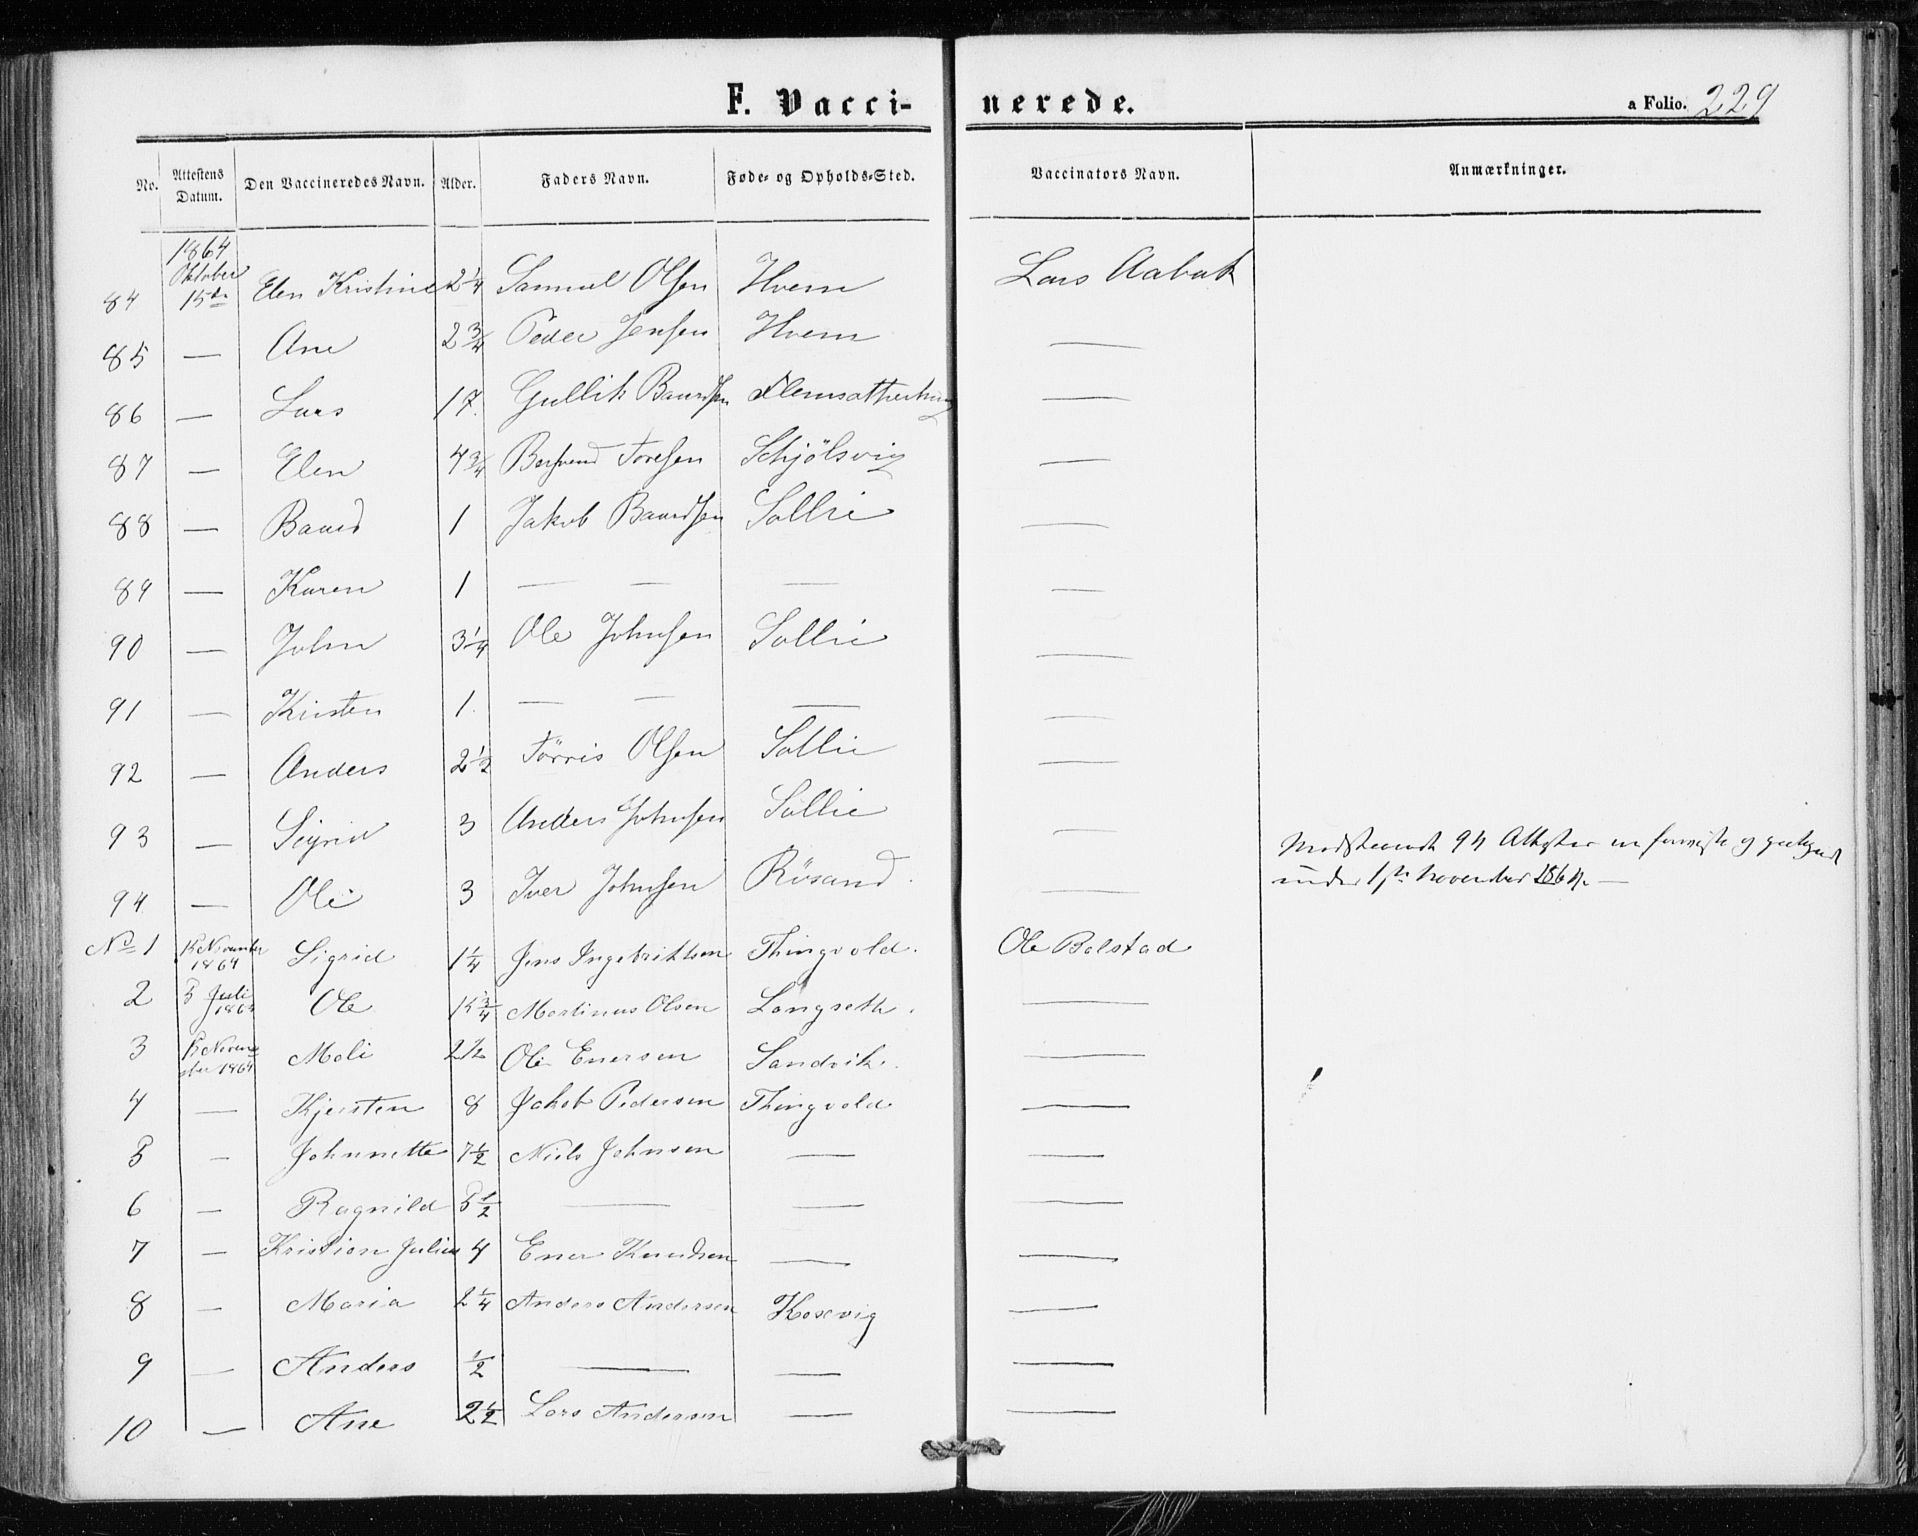 F. Vacci- nerede. a Folio. 229
No. Attestens Datum. Den Vaccineredes Navn. Alder. Faders Navn. Føde- og Opholds-Sted. Vaccinators Navn. Anmærkninger.
1864
Oktober
84 15de Elen Kristine 2 1/4 Samuel Olsen Hvem Lars Aabak
85 — Ane 2 3/4 Peder Jensen Hvem —
86 — Lars 17. Gullik Baardsen —
87 — Elen 4 3/4 Toresen Schjölsvig —
88 — Baard 1 Jakob Baardsen Sollie —
89 — Karen 1 — — — —
90 — John 3 1/4 Ole Johnsen Sollie —
91 — Kirsten 1. — — — —
92 — Anders 2 1/2 Törris Olsen Sollie —
93 — Sigrid 3 Anders Johnsen Sollie —
94 — Ole 3 Iver Johnsen Rösand. — 94 Attester
under 1ste November 1864. —
No 1 15 November 1864 Sigrid 1 1/4 Jens Ingebriktsen Thingvold. Ole Bolstad
2 5 Juli 1864 Ole 15 3/4 Martinus Olsen Langseth. —
3 15 November 1864 Mali 2 1/2 Ole Enersen Sandvik. —
4 — Kjersten 8 Jakob Pedersen Thingvold —
5 — Johnnette 7 1/2 Niels Johnsen — —
6 — Ragnild 5 1/2 — — —
7 — Kristian Julius 4 Ener Knudsen — —
8 — Maria 2 1/4 Anders Andersen Kosevig —
9 — Anders 1/2 — — —
10 — Ane 2 1/2 Lars Andersen — —